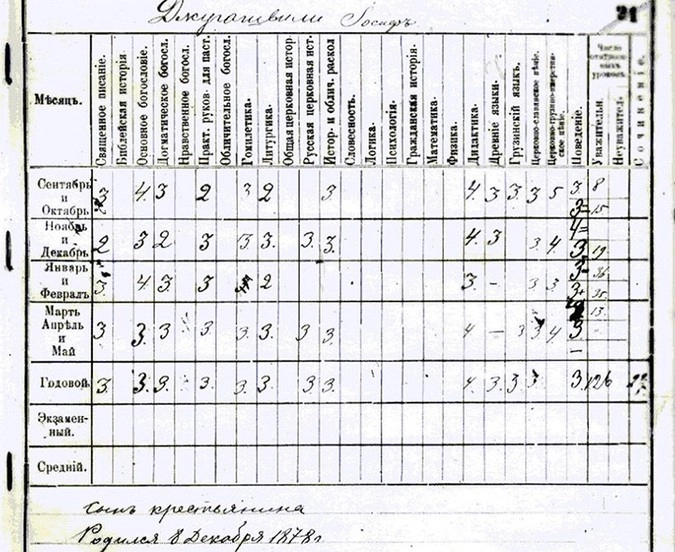 Джугашвили Іосифъ
31
Мѣсяцъ.
Священное писаніе.
Библейская исторія
Основное богословіе.
Догматическое богосл.
Нравственное богосл.
Практ. руков. для паст.
Обличительное богосл.
Гомилетика.
Литургика.
Общая церковная истор.
Русская церковная ист-
Истор- и облич. раскол
Словесность.
Логика.
Психологія-
Гражданская исторія-
Математика.
Физика.
Дидактика.
Древніе языки.
Грузинскій языкъ,
Церковно-славянское пѣніе.
Церковно-грузино-имеретин-
ское пѣніе.
Поведеніе.
Число
уроковъ.
Уважительн.
Неуважител.
Сочиненіе.
Сентябрь и Октябрь
3. 4. 3 2 3 2 3. 4. 3 3. 3 5 3 8
3= 15
Ноябрь и Декабрь
2 3 2 3 3. 3. 3. 3. 4. 3 3 4 4=
3 19
Январь и Февралъ
3. 4 3. 3 2 3. - 3 3 3= 36
3+ 35
Мартъ Апрѣль и Май
3 3. 3 3. 3. 3. 3 3. 4 - 3 3 4 13.
3.
—
Годовой.
3. 3. 3. 3. 3. 3. 3 3 4. 3. 3 3 3. 126
Экзамен-
ный.
Средній.
сынъ крестьянина
Родился 6 Декабря 1878 г